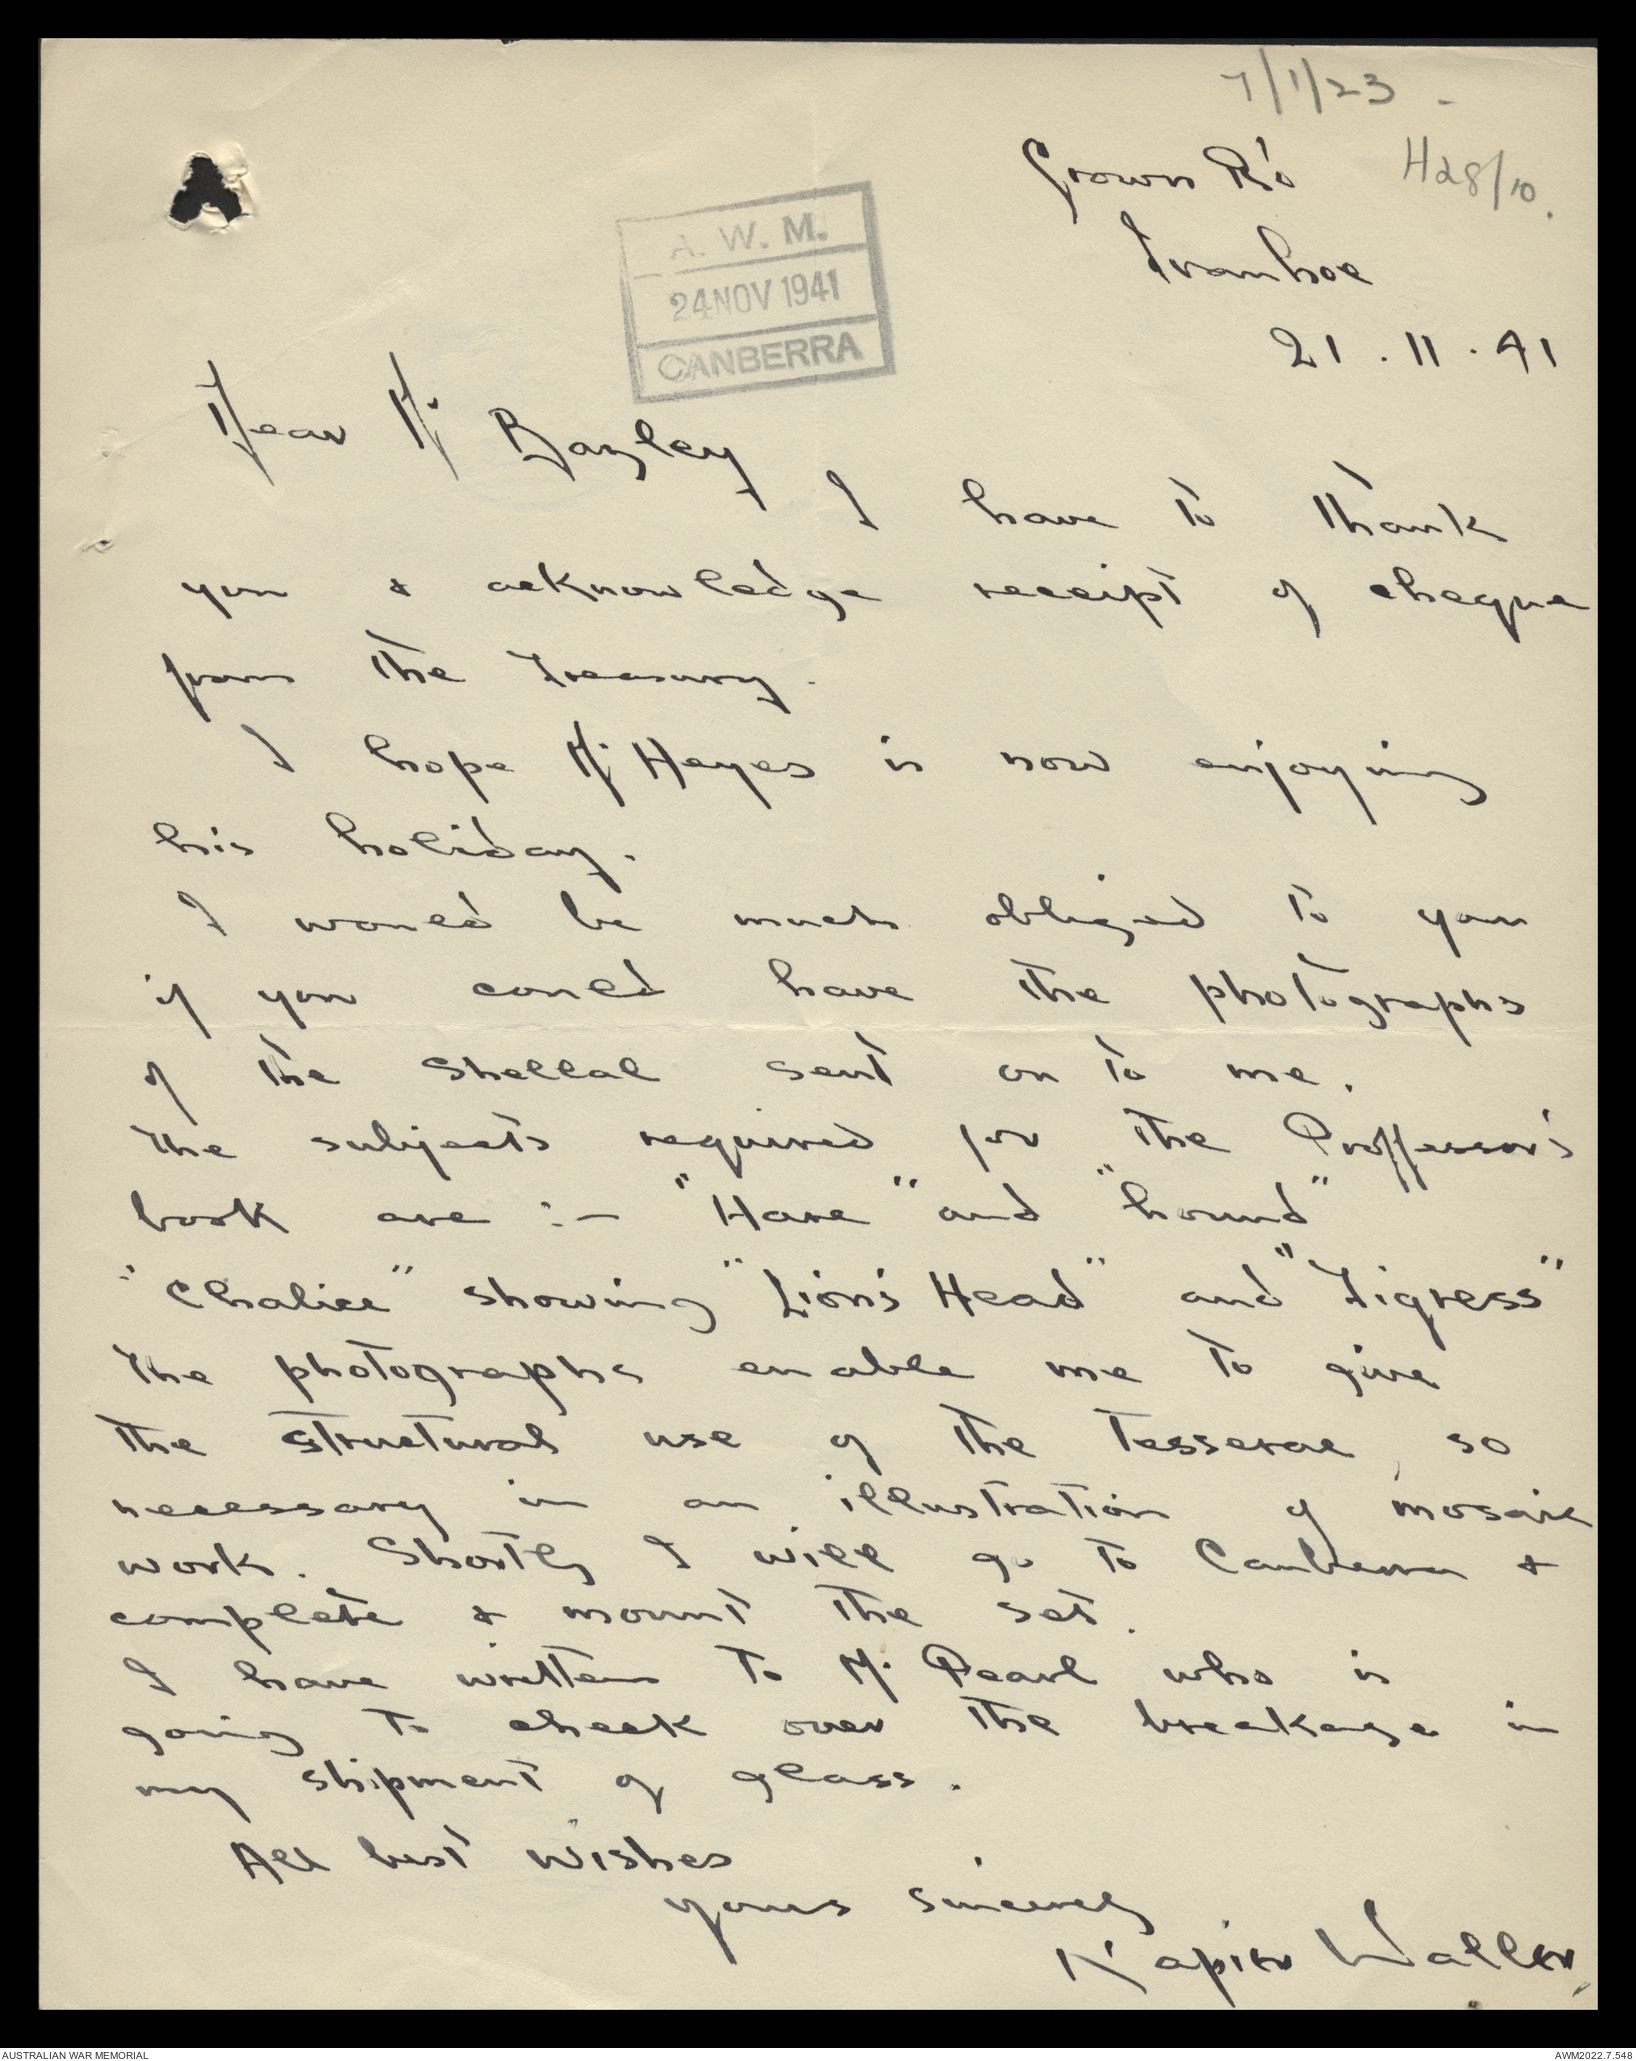 7/1/23 -
Crown Rd
H28/10.
Ivanhoe
21.11.41
A. W. M.
24 NOV 1941
CANBERRA
Dear Mr Bazley
I have to thank
you & acknowledge receipt of cheque
from the Treasury.
I hope Mr Heyes is now enjoying
his holiday.
I would be much obliged to you
if you could have the photographs
of the Shellal sent on to me.
The subjects required for the Proffessor's
book are :- "Hare" and "hound"
"Chalice" showing "Lion's Head" and "Tigress"
The photographs enable me to give
the structural use of the tesserae, so
necessary in an illustration of mosaic
work. Shortly I will go to Canberra &
complete & mount the set.
I have written to Mr Pearl who is
going to check over the breakage in
my shipment of glass.
All best wishes
yours sincerely
Napier Waller
AUSTRALIAN WAR MEMORIAL
AWM2022.7.548